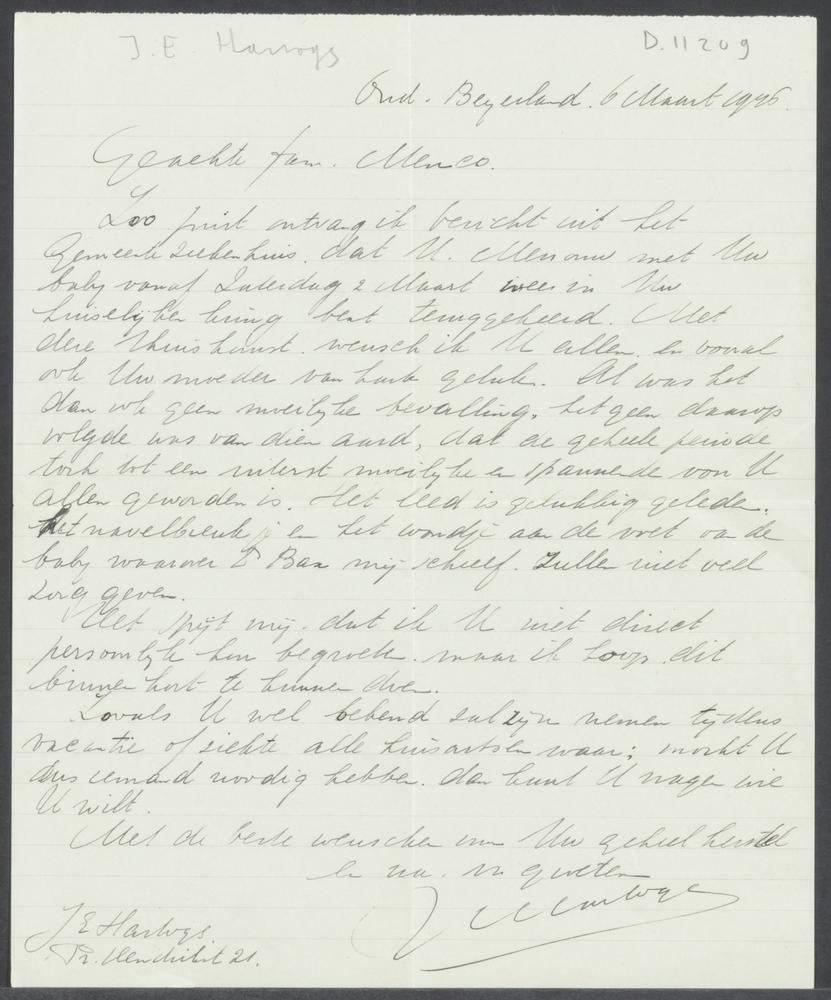 J. E. Hartogs
D.11209
Oud-Beyerland. 6 Maart 1946.
Geachte fam. Menco.
Zoo juist ontvang ik bericht uit het
Gemeente Ziekenhuis, dat U. Mevrouw met Uw
baby vanaf Zaterdag 2 Maart weer in Uw
huiselijken kring bent teruggekeerd. Met
deze thuiskomst wensch ik U allen en vooral
ook Uw moeder van harte geluk. Al was het
dan ook geen moeilijke bevalling, hetgeen daarop
volgde was van dien aard, dat de geheele periode
toch tot een uiterst moeilijke en spannende voor U
allen geworden is. Het leed is gelukkig geleden.
Het navelbreukje en het wondje aan de voet van de
baby waarover Dr Bax mij schreef. zullen niet veel
zorg geven.
Het spijt mij dat ik U niet direct
persoonlijk kan begroeten. maar ik hoop dit
binnen kort te kunnen doen.
Zooals U wel bekend zal zijn nemen tijdens
vacantie of ziekte alle huisartsen waar; mocht U
dus iemand noodig hebben. dan kunt U vragen wie
U wilt.
Met de beste wenschen voor Uw geheel herstel
en m. vr. groeten
J E Hartogs
J E Hartogs.
Pr. Hendrikstr 21.